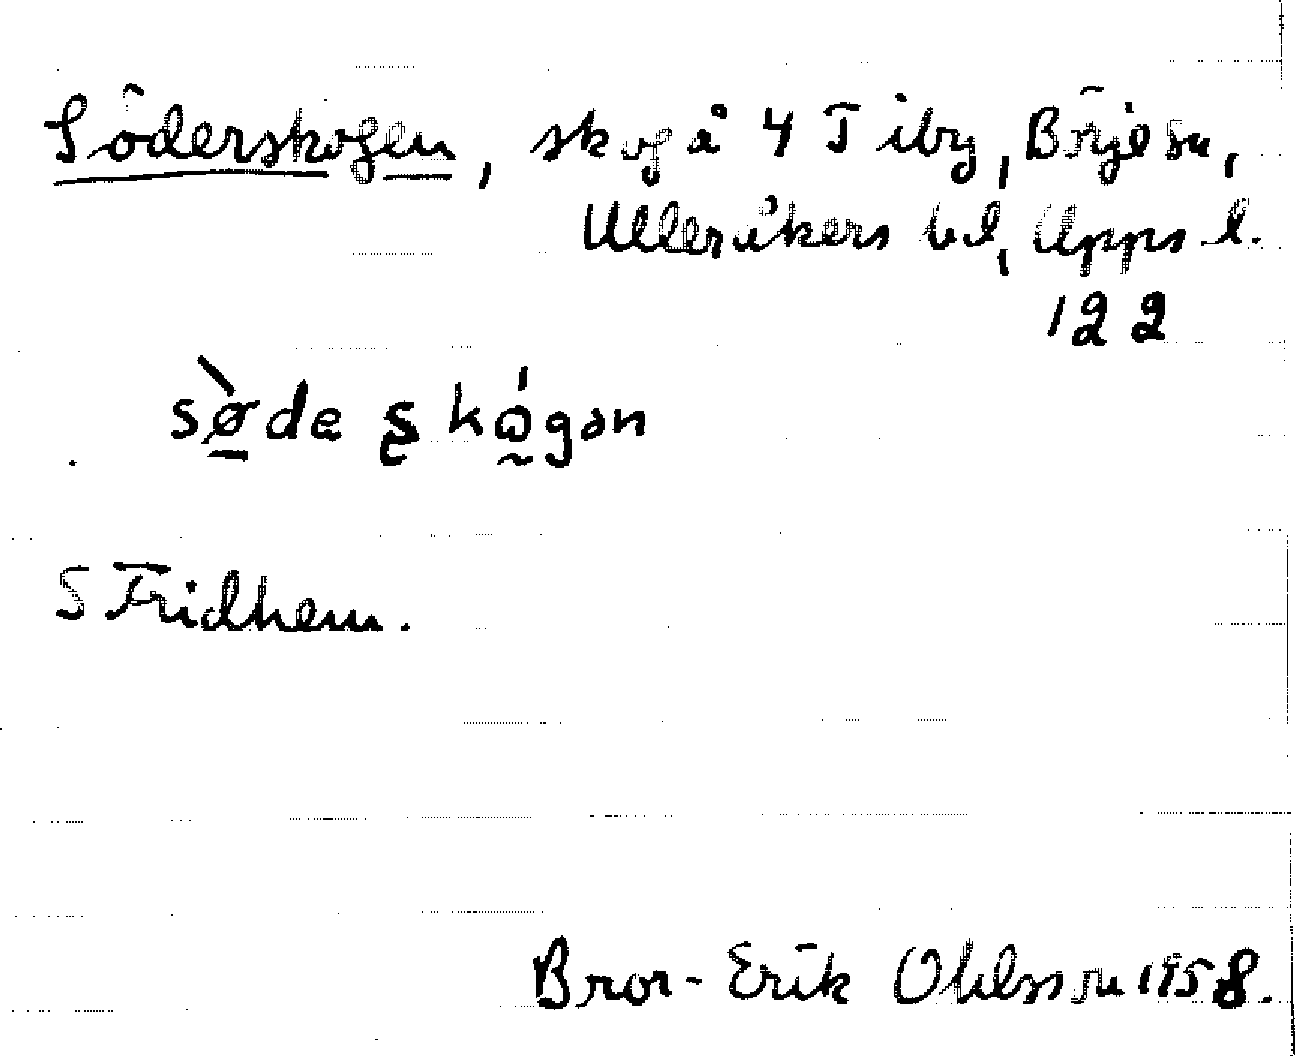 Söderskogen, skog å 4 Tiby, Börje sn,
Ulleråkers hd, Upps. l.
122
sø̀de ʂkógan
S Fridhem.
Bror-Erik Ohlsson 1958.